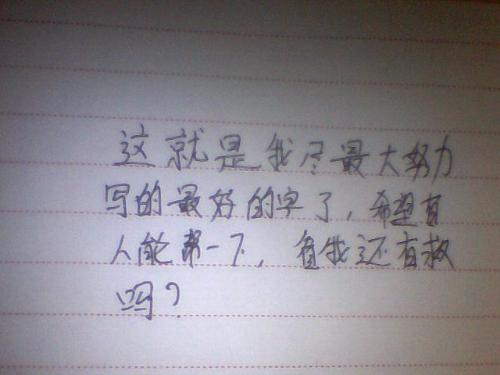 这就是我尽最大努力
写的最好的字了，希望有
人能帮一下，我还有救
吗？